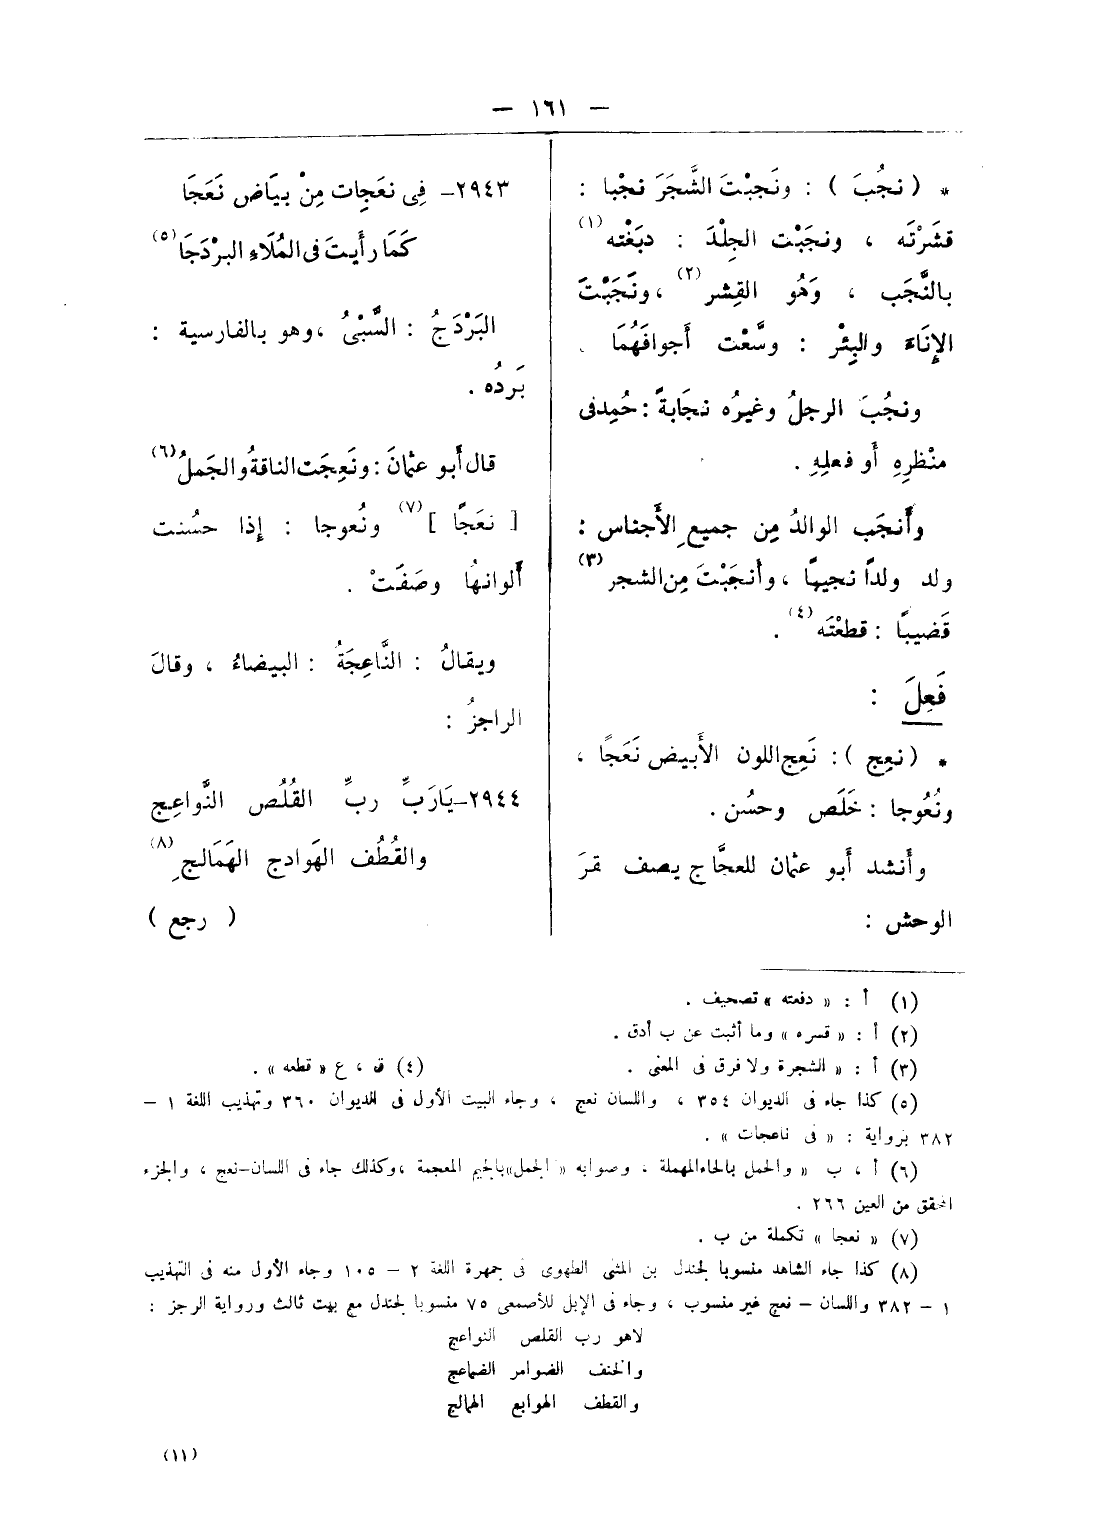 — ١٦١ —
* ( نجُبَ ) : ونَجبْتَ الشَّجَرَ نجْبا :
قشَرْتَه ، ونجَبْت الجِلْدَ : دبَغْته(١)
بالنَّجَب ، وَهُو القِشر(٢) ، ونَجَبْتَ
الإِنَاءَ والبِئْر : وسَّعْت أجوافَهُمَا .
ونجُبَ الرجلُ وغيرُه نجَابةً : حُمِدفى
منْظرِهِ أو فعلِهِ .
وأَنجَب الوالدُ مِن جميعِ الأَجناس :
ولد ولدًا نجيبًا ، وأنجَبْتَ مِن الشجر(٣)
قَضيبًا : قطعْتَه(٤) .
فَعِلَ :
* ( نعِج ) : نَعِج اللون الأَبيض نَعَجًا ،
ونُعُوجا : خَلَص وحسُن .
وأنشد أبو عثمان للعجَّاج يصف بقرَ
الوحش :
٢٩٤٣– فِى نعَجات مِنْ بيَاض نَعَجَا
كَمَا رأَيتَ فى المُلَاءِ البرْدَجَا(٥)
البَرْدَجُ : السَّبْىُ ، وهو بالفارسية :
بَردُه .
قال أَبو عثمانَ : ونَعِجَت الناقةُ والجَملُ(٦)
[ نعَجًا ](٧) ونُعوجا : إذا حسُنت
أَلوانهُا وصَفَتْ .
ويقالُ : النَّاعِجَةُ : البيضاءُ ، وقالَ
الراجزُ :
٢٩٤٤–يَارَبِّ ربِّ القُلُص النَّواعِج
والقُطُف الهَوادج الهَمَالجِ(٨)
( رجع )
(١) أ : « دفعته » تصحيف .
(٢) أ : « قسره » وما أثبت عن ب أدق .
(٣) أ : « الشجرة ولا فرق فى المعنى .
(٤) ق ، ع « قطعه » .
(٥) كذا جاء فى الديوان ٣٥٤ ، واللسان نعج ، وجاء البيت الأول فى الديوان ٣٦٠ وتهذيب اللغة ١ –
٣٨٢ برواية : « فى ناعجات » .
(٦) أ ، ب « والحمل بالحاء المهملة ، وصوابه « الجمل » بالجيم المعجمة ، وكذلك جاء فى اللسان–نعج ، والجزء
المحقق من العين ٢٦٦ .
(٧) « نعجا » تكملة من ب .
(٨) كذا جاء الشاهد منسوبا لجندل بن المثنى الطهوى فى جمهرة اللغة ٢ – ١٠٥ وجاء الأول منه فى التهذيب
١ – ٣٨٢ واللسان – نعج غير منسوب ، وجاء فى الإبل للأصمعى ٧٥ منسوبا لجندل مع بيت ثالث ورواية الرجز :
لاهو رب القلص النواعج
والخنف الضوامر الضماعج
والقطف الهوابع الهمالج
(١١)